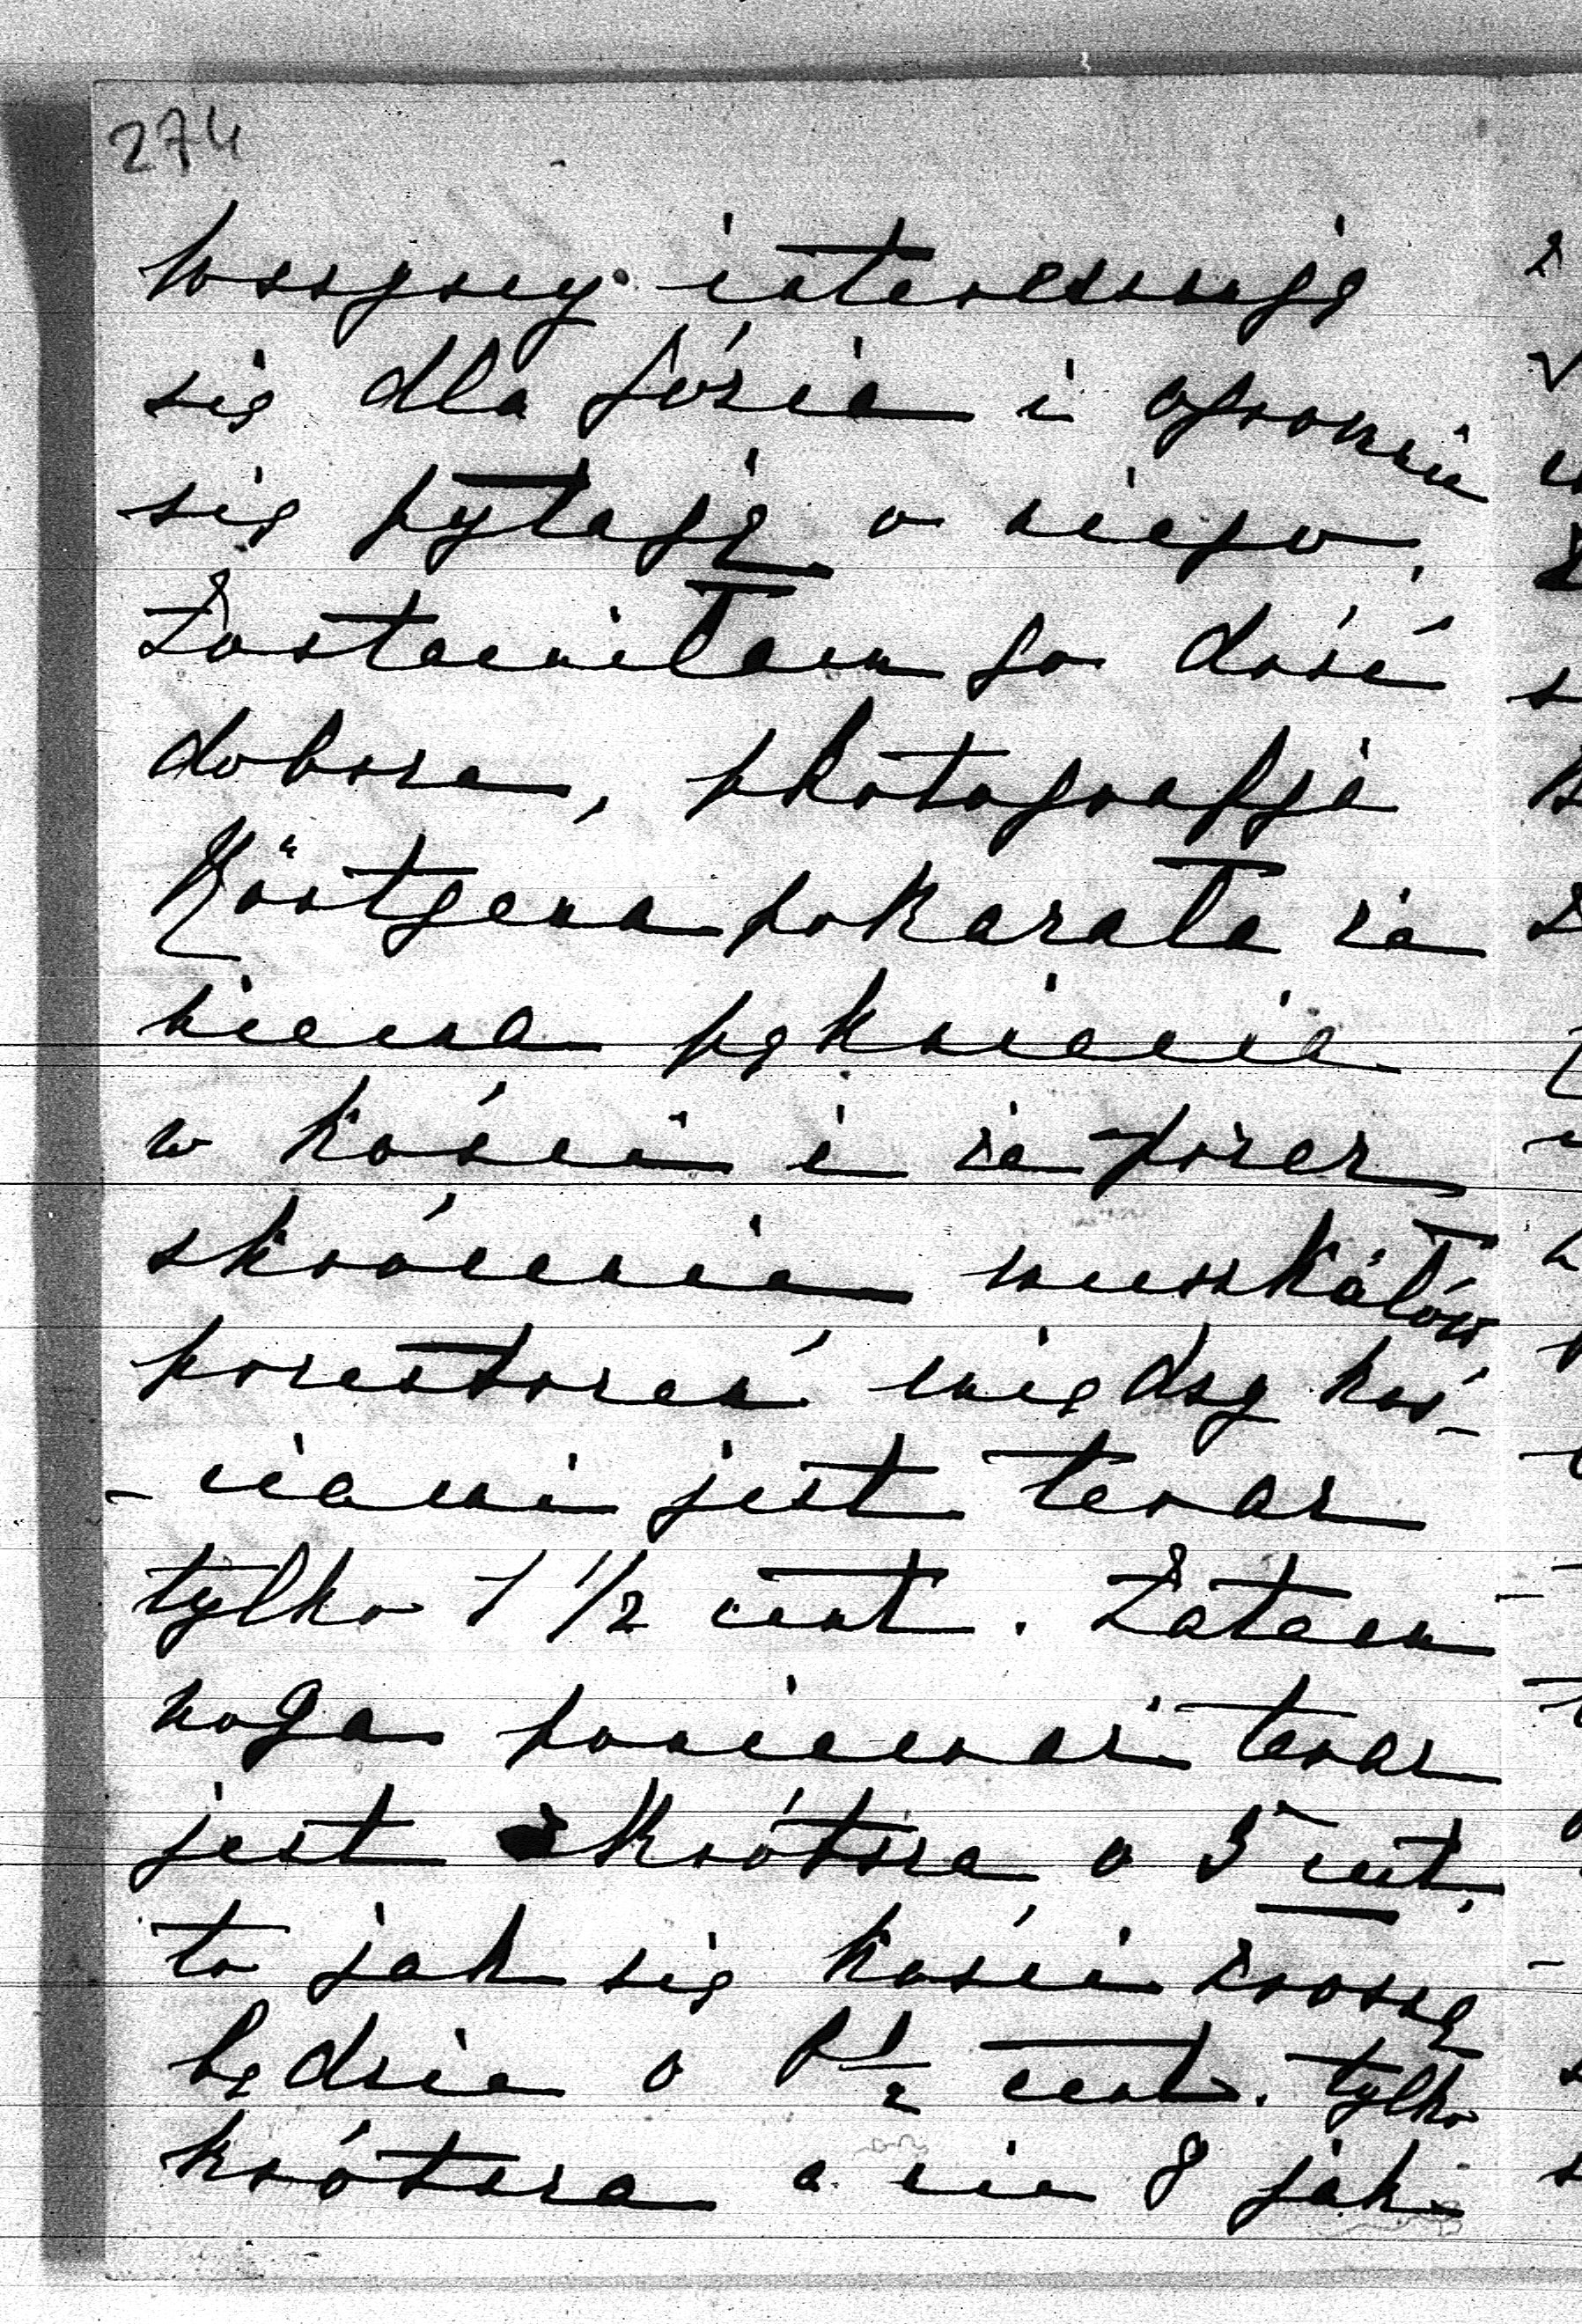 274
wszyscy interesują
się dla Józia i ogromnie
się pytają o niego.
Zostawiłam go dość
dobrze, photografja
Röntgena pokazała że
niema pęknięcia
w kości i że przez
skrócenie muszkułów
przestrzeń między koś-
-ciami jest teraz
tylko 1 1/2 cent. Zatem
noga ponieważ teraz
jest krótsza o 5 cent.
to jak się kości zrosną
będzie o 1 1/2 cent. tylko
krótsza a nie 8 jak